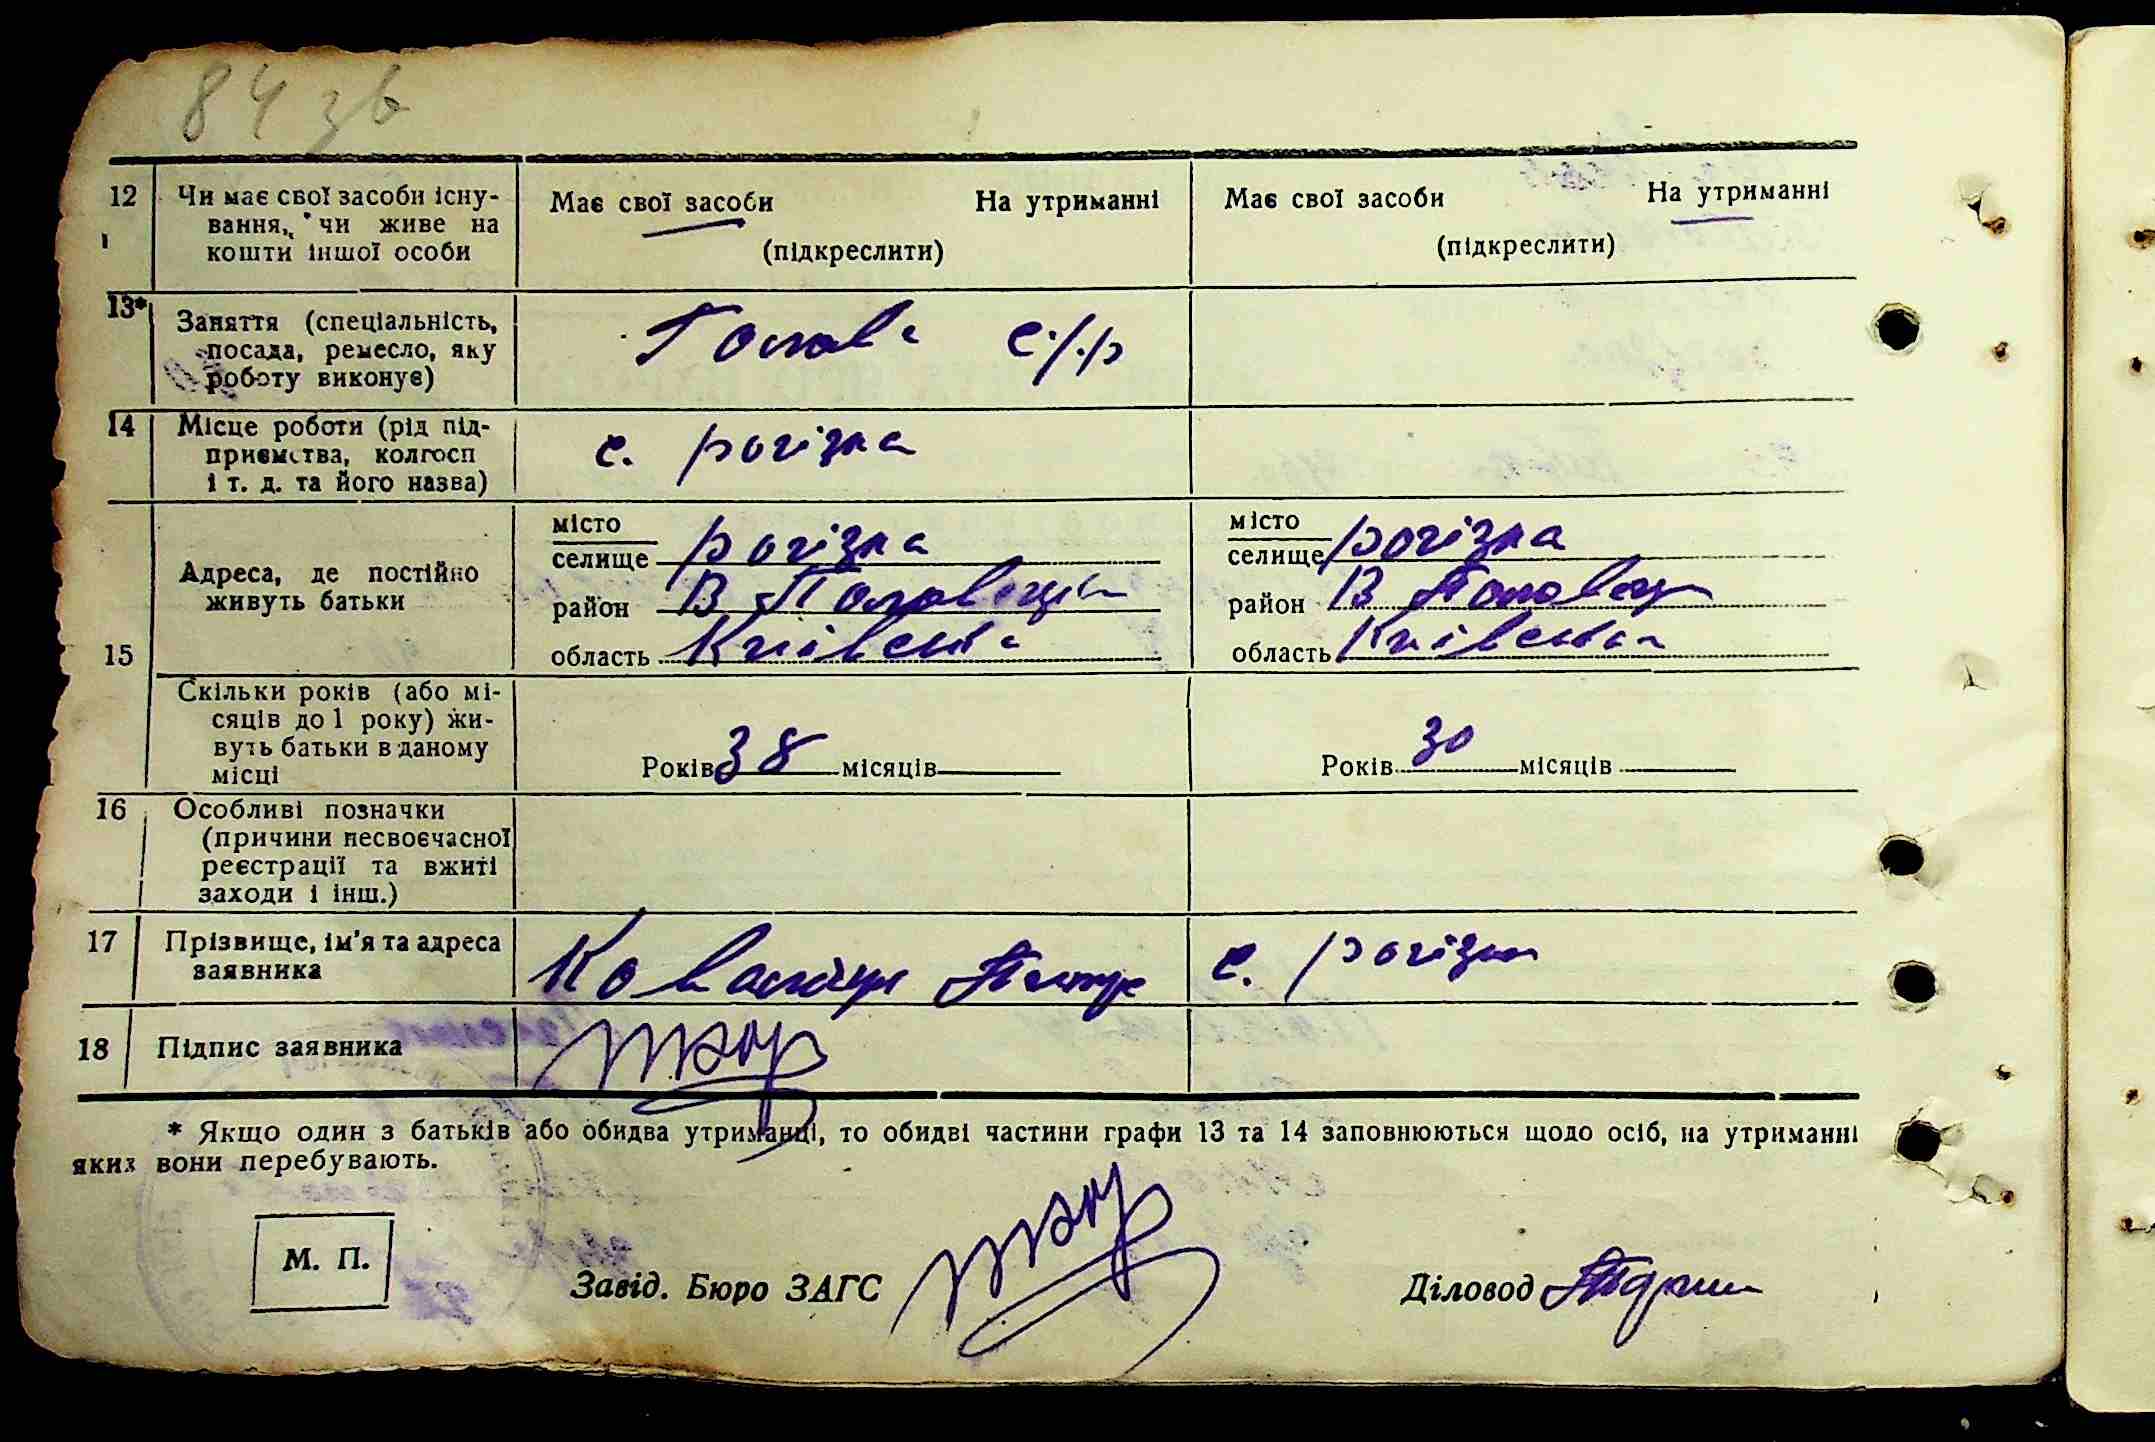 84 зв
12 Чи має свої засоби існу-
вання, чи живе на
кошти іншої особи
Має свої засоби На утриманні
(підкреслити)
Має свої засоби На утриманні
(підкреслити)
13* Заняття (спеціальність,
посада, ремесло, яку
роботу виконує)
Голова с/р
14 Місце роботи (рід під-
приємства, колгосп
і т. д. та його назва)
с. Рогізна
15 Адреса, де постійно
живуть батьки
місто
селище Рогізна
район В Половецьк
область Київська
місто
селище Рогізна
район В Половецьк
область Київська
Скільки років (або мі-
сяців до 1 року) жи-
вуть батьки в даному
місці
Років 38 місяців
Років 30 місяців
16 Особливі позначки
(причини несвоєчасної
реєстрації та вжиті
заходи і інш.)
17 Прізвище, ім'я та адреса
заявника
с. Рогізна
18 Підпис заявника
* Якщо один з батьків або обидва утриманці, то обидві частини графи 13 та 14 заповнюються щодо осіб, на утриманні
яких вони перебувають.
М. П.
Завід. Бюро ЗАГС
Діловод